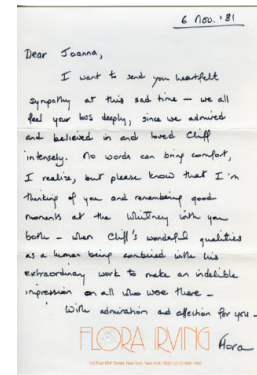 6 Nov. '81
Dear Joanna,
I want to send you heartfelt
sympathy at this sad time — we all
feel your loss deeply, since we admired
and believed in and loved Cliff
intensely. No words can bring comfort,
I realize, but please know that I'm
thinking of you and remembering good
moments at the Whitney with you
both — when Cliff's wonderful qualities
as a human being combined with his
extraordinary work to make an indelible
impression on all who were there —
With admiration and affection for you —
Flora
FLORA IRVING